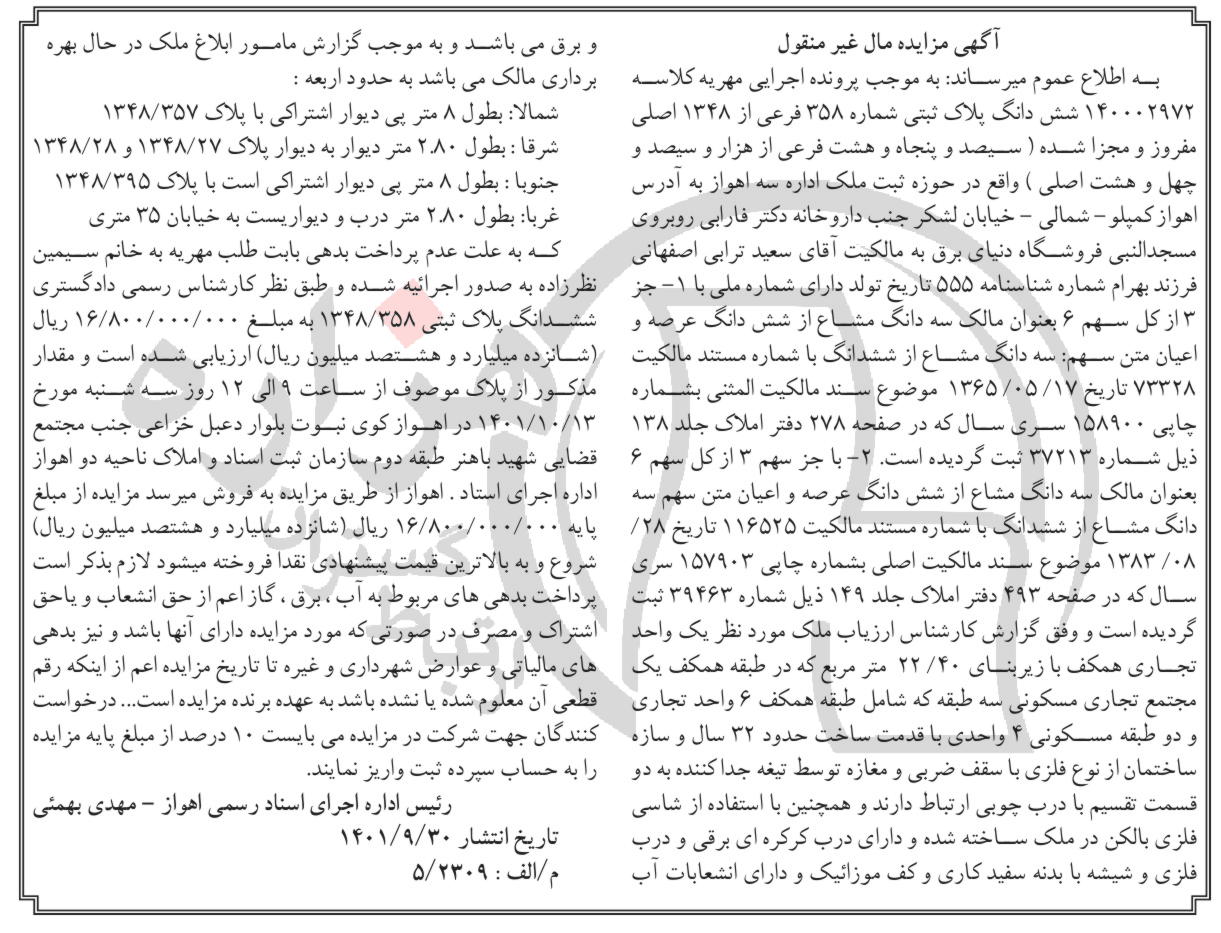 آگهی مزایده مال غیر منقول
به اطلاع عموم میرساند: به موجب پرونده اجرایی مهریه کلاسه
۱۴۰۰۰۲۹۷۲ شش دانگ پلاک ثبتی شماره ۳۵۸ فرعی از ۱۳۴۸ اصلی
مفروز و مجزا شده ( سیصد و پنجاه و هشت فرعی از هزار و سیصد و
چهل و هشت اصلی ) واقع در حوزه ثبت ملک اداره سه اهواز به آدرس
اهواز کمپلو – شمالی – خیابان لشکر جنب داروخانه دکتر فارابی روبروی
مسجدالنبی فروشگاه دنیای برق به مالکیت آقای سعید ترابی اصفهانی
فرزند بهرام شماره شناسنامه ۵۵۵ تاریخ تولد دارای شماره ملی با ۱– جز
۳ از کل سهم ۶ بعنوان مالک سه دانگ مشاع از شش دانگ عرصه و
اعیان متن سهم: سه دانگ مشاع از ششدانگ با شماره مستند مالکیت
۷۳۳۲۸ تاریخ ۱۷/ ۰۵/ ۱۳۶۵ موضوع سند مالکیت المثنی بشماره
چاپی ۱۵۸۹۰۰ سری سال که در صفحه ۲۷۸ دفتر املاک جلد ۱۳۸
ذیل شماره ۳۷۲۱۳ ثبت گردیده است. ۲– با جز سهم ۳ از کل سهم ۶
بعنوان مالک سه دانگ مشاع از شش دانگ عرصه و اعیان متن سهم سه
دانگ مشاع از ششدانگ با شماره مستند مالکیت ۱۱۶۵۲۵ تاریخ ۲۸/
۰۸/ ۱۳۸۳ موضوع سند مالکیت اصلی بشماره چاپی ۱۵۷۹۰۳ سری
سال که در صفحه ۴۹۳ دفتر املاک جلد ۱۴۹ ذیل شماره ۳۹۴۶۳ ثبت
گردیده است و وفق گزارش کارشناس ارزیاب ملک مورد نظر یک واحد
تجاری همکف با زیربنای ۴۰/ ۲۲ متر مربع که در طبقه همکف یک
مجتمع تجاری مسکونی سه طبقه که شامل طبقه همکف ۶ واحد تجاری
و دو طبقه مسکونی ۴ واحدی با قدمت ساخت حدود ۳۲ سال و سازه
ساختمان از نوع فلزی با سقف ضربی و مغازه توسط تیغه جداکننده به دو
قسمت تقسیم با درب چوبی ارتباط دارند و همچنین با استفاده از شاسی
فلزی بالکن در ملک ساخته شده و دارای درب کرکره ای برقی و درب
فلزی و شیشه با بدنه سفید کاری و کف موزائیک و دارای انشعابات آب
و برق می باشد و به موجب گزارش مامور ابلاغ ملک در حال بهره
برداری مالک می باشد به حدود اربعه :
شمالا: بطول ۸ متر پی دیوار اشتراکی با پلاک ۱۳۴۸/۳۵۷
شرقا : بطول ۲.۸۰ متر دیوار به دیوار پلاک ۱۳۴۸/۲۷ و ۱۳۴۸/۲۸
جنوبا : بطول ۸ متر پی دیوار اشتراکی است با پلاک ۱۳۴۸/۳۹۵
غربا: بطول ۲.۸۰ متر درب و دیواریست به خیابان ۳۵ متری
که به علت عدم پرداخت بدهی بابت طلب مهریه به خانم سیمین
نظرزاده به صدور اجرائیه شده و طبق نظر کارشناس رسمی دادگستری
ششدانگ پلاک ثبتی ۱۳۴۸/۳۵۸ به مبلغ ۱۶/۸۰۰/۰۰۰/۰۰۰ ریال
(شانزده میلیارد و هشتصد میلیون ریال) ارزیابی شده است و مقدار
مذکور از پلاک موصوف از ساعت ۹ الی ۱۲ روز سه شنبه مورخ
۱۴۰۱/۱۰/۱۳ در اهواز کوی نبوت بلوار دعبل خزاعی جنب مجتمع
قضایی شهید باهنر طبقه دوم سازمان ثبت اسناد و املاک ناحیه دو اهواز
اداره اجرای اسناد . اهواز از طریق مزایده به فروش میرسد مزایده از مبلغ
پایه ۱۶/۸۰۰/۰۰۰/۰۰۰ ریال (شانزده میلیارد و هشتصد میلیون ریال)
شروع و به بالاترین قیمت پیشنهادی نقدا فروخته میشود لازم بذکر است
پرداخت بدهی های مربوط به آب ، برق ، گاز اعم از حق انشعاب و یاحق
اشتراک و مصرف در صورتی که مورد مزایده دارای آنها باشد و نیز بدهی
های مالیاتی و عوارض شهرداری و غیره تا تاریخ مزایده اعم از اینکه رقم
قطعی آن معلوم شده یا نشده باشد به عهده برنده مزایده است... درخواست
کنندگان جهت شرکت در مزایده می بایست ۱۰ درصد از مبلغ پایه مزایده
را به حساب سپرده ثبت واریز نمایند.
رئیس اداره اجرای اسناد رسمی اهواز – مهدی بهمئی
تاریخ انتشار ۱۴۰۱/۹/۳۰
م/الف : ۵/۲۳۰۹
هزاره
گستران
ارتباط